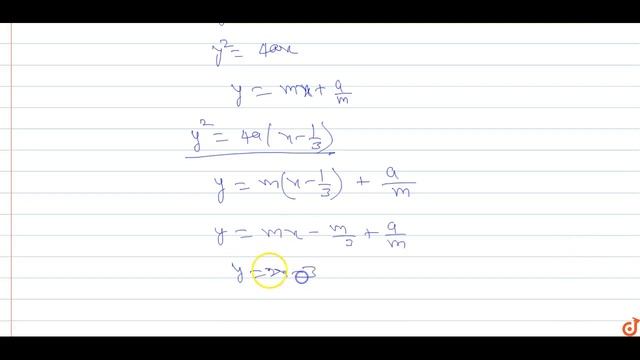 y² = 4ax
y = mx + a/m
y² = 4a(x - 1/3)
y = m(x - 1/3) + a/m
y = mx - m/3 + a/m